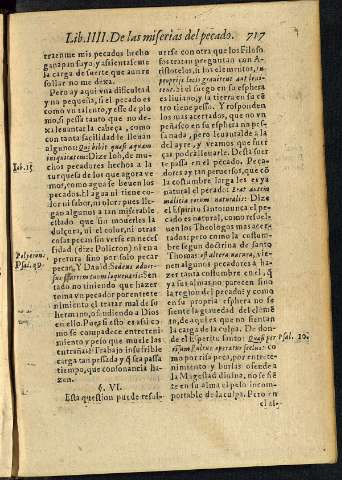 Lib. IIII. De las miserias del pecado. 717
traenme mis pecados hecho
ganapan suyo, y assientaseme
la carga de suerte que aun re
sollar no me dexa.
Pero ay aqui vna dificultad
y no pequeña, si el pecado es
como vn talento, y este de plo
mo, si pessa tanto que no de-
xa leuantar la cabeça, como
con tanta facilidad le lleuan
algunos: Qui bibit quasi aquam
iniquitatem: Dize Iob, de mu-
chos pecadores hechos a la
turquesa de los que agora ve
mos, como agua le beuen los
pecados: El agua ni tiene olor
ni sabor, ni olor: pues lle-
gan algunos a tan miserable
estado que sin mouerles la
dulçura, ni el color, ni otras
cosas pecan sin verse en neces
sidad (dize Policron) ni en a
pretura sino por solo pecar
pecan. Y Dauid:
tado no tiniendo que hazer
toma vn pecador por entrete
nimiento el tratar mal de su
hermano, osudiendo a Dios
en ello. Pues si esto es assi co
mo se compadece entreteni-
miento y peso que muele las
entrañas? Trabajo insufrible
carga tan pesada y q̃ essa passa
tiempo, que consonancia ha-
zen.
§. VI.
Esta question puede resul-
uerse con otra que los Filoso
fos tratan preguntan con A-
ristoteles, si los elementos, in
proprijs locis grauitent aut leui-
tent. Si el fuego en su esphera
es liuiano, y la tierra en su cẽ
tro tiene pesso. Y responden
los mas acertados, que no vn
peñasco en su esphera no pe-
sa nada, pero leuantalde a la
del ayre, y veamos que fuer
ças podrã lleuarle. Desta suer
te passa en el pecado. Peca-
dores ay tan peruersos, que cõ
la costumbre larga les es ya
natural el pecado: Erat autem
malicia eorum naturalis: Dize
el Espiritu santo nunca el pe-
cado es natural, como resuel-
uen los Theologos mas acer-
tados: pero como la costum-
bre segun doctrina de santo
Thomas est altera natura, vie-
nen algunos pecadores a ha-
zer tanta costumbre en el, q̃
ya sus almas no parecen sino
la region del pecado; y como
en su propria esphera no se
siente la grauedad del eleme
to, de aqui es que no sientan
la carga de la culpa. De don-
de el Espiritu santo: Quasi per
risum stultus operatur scelus: co
mo por risa peca, por entrete-
nimiento y burlas ofende a
la Magestad diuina, no se siẽ
te en su alma el peso incom-
portable de la culpa. Pero en
el al-
Iob. 15
Psal. 49.